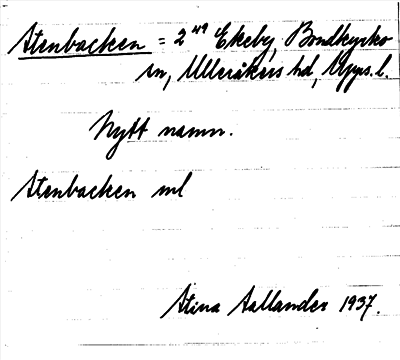 Stenbacken = 2⁴⁹ Ekeby, Bondkyrko
sn, Ulleråkers hd, Upps. l.
Nytt namn.
Stenbacken ml
Stina Aallander 1937.